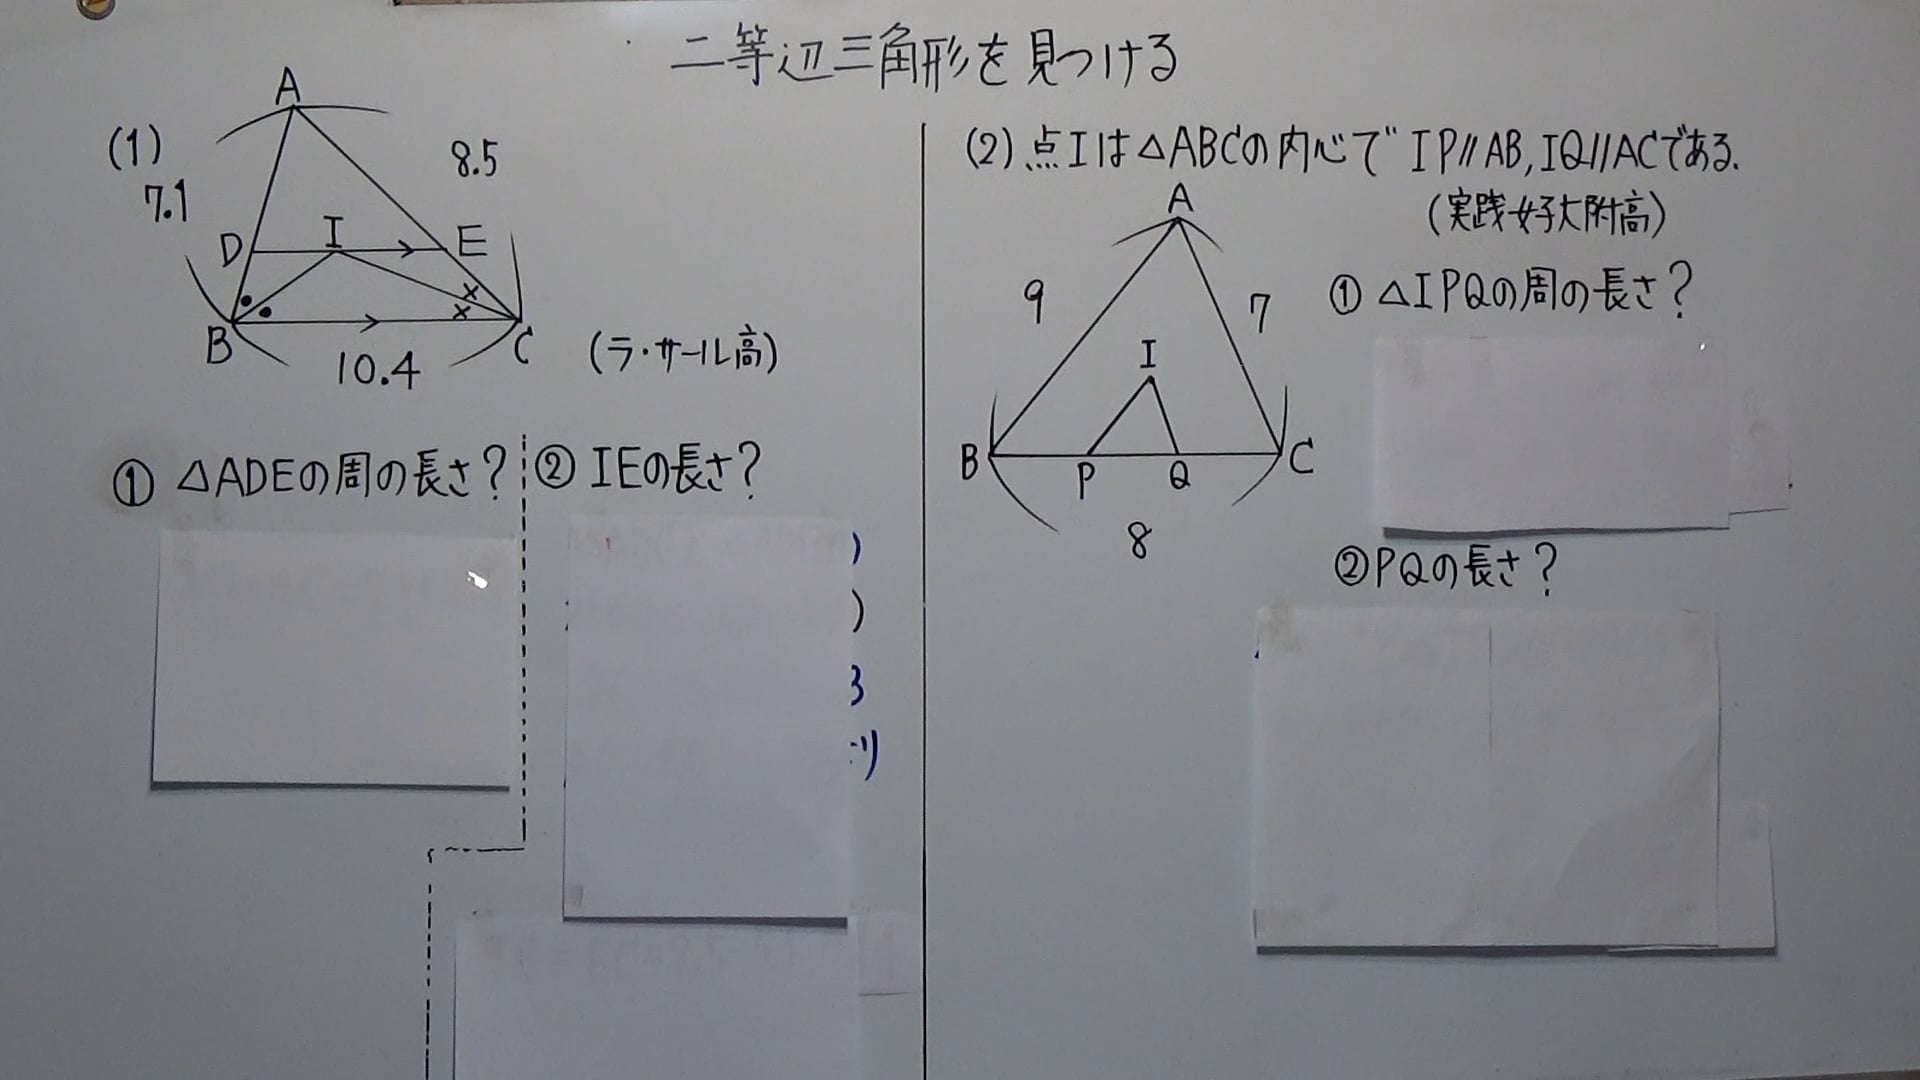 二等辺三角形を見つける
(1)
A
7.1
8.5
D
I
E
B
C
10.4
(ラ・サール高)
① △ADEの周の長さ?
② IEの長さ?
)
)
3
(2) 点Iは△ABCの内心で IP//AB, IQ//ACである.
(実践女子大附高)
A
9
7
I
B
P
Q
C
8
① △IPQの周の長さ?
②PQの長さ?